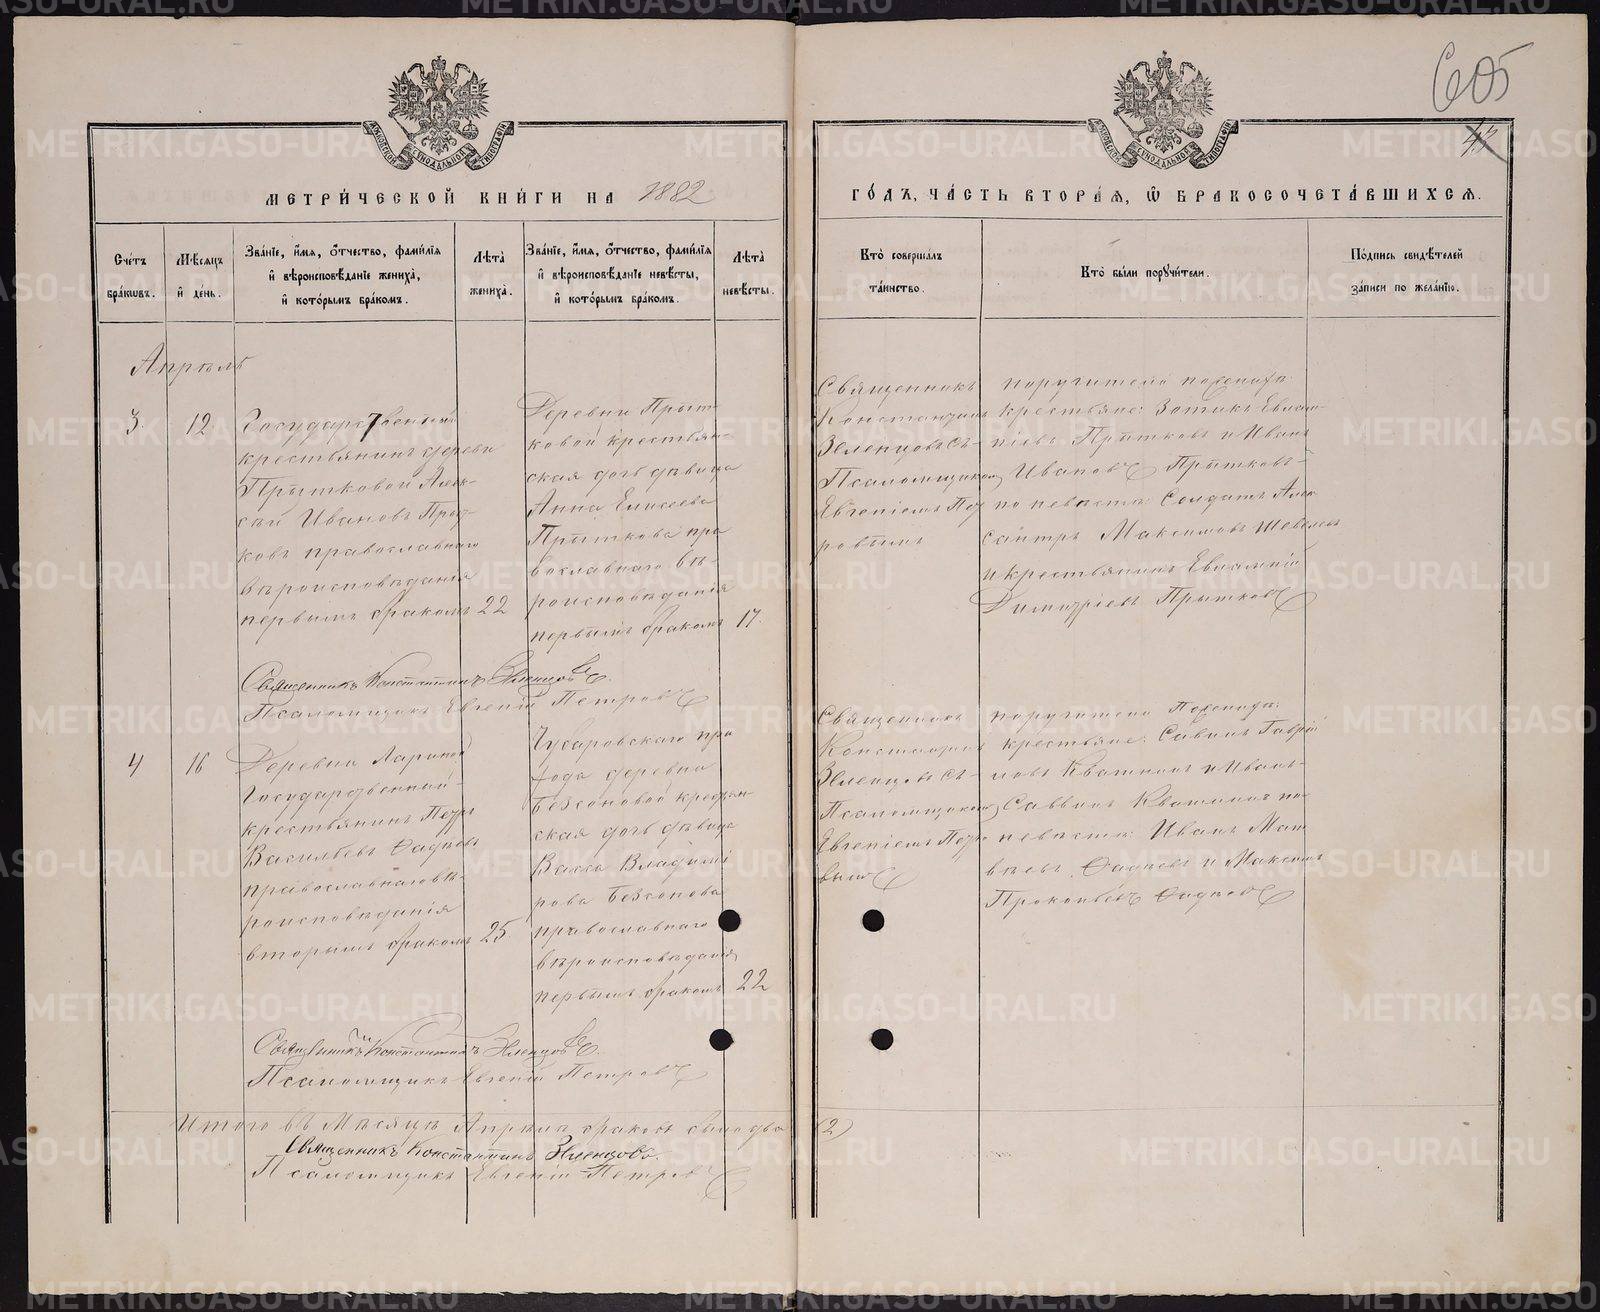 605
43
МЕТРИ́ЧЕСКОЙ КНИ́ГИ НА 1882
ГО́ДЪ, ЧА́СТЬ ВТОРА́Я, Ѽ БРАКОСОЧЕТА́ВШИХСЯ.
Сче́тъ бра́кѡвъ.
Мѣ́сяцъ и҆ де́нь.
Зва́нїе, и҆́мя, ѻ҆́тчество, фами́лїя и҆ вѣроисповѣ́данїе жениха̀, и҆ кото́рымъ бра́комъ.
Лѣ́та жениха̀.
Зва́нїе, и҆́мя, ѻ҆́тчество, фами́лїя и҆ вѣроисповѣ́данїе невѣ́сты, и҆ кото́рымъ бра́комъ.
Лѣ́та невѣ́сты.
Кто̀ соверша́лъ та́инство.
Кто̀ бы́ли поручи́тели.
По́дпись свидѣ́телей за́писи по жела́нїю.
Апрѣль
3.
12
Государственный
крестьянинъ деревни
Прытковой Алек-
сѣй Ивановъ Прыт-
ковъ православнаго
вѣроисповѣданія
первымъ бракомъ
22
Деревни Прыт-
ковой крестьян-
ская дочь дѣвица
Анна Елисеева
Прыткова пра
вославнаго вѣ-
роисповѣданія
первымъ бракомъ
17.
Священникъ
Константинъ
Зѣленцовъ съ
Псаломщикомъ
Евгеніемъ Пет
ровымъ
поручители по женихѣ
крестьяне: Зотикъ Евлам-
піевъ Прытковъ и Иванъ
Ивановъ Прытковъ
по невѣстѣ: Солдатъ Алек
сандръ Максимовъ
и крестьянинъ Евлампій
Димитріевъ Прытковъ
Священникъ Константинъ Зѣленцовъ.
Псаломщикъ Евгеній Петровъ
4
16
Деревни Лариной
Государственный
крестьянинъ Петръ
Васильевъ Ѳадѣевъ
православнаго вѣ-
роисповѣданія
вторымъ бракомъ
25
Чусаровскаго при
хода деревни
Безсоновой крестьян-
ская дочь дѣвица
Васса Владимі
рова Безсонова
православнаго
вѣроисповѣданія
первымъ бракомъ
22
Священникъ
Константинъ
Зѣленцовъ съ
Псаломщикомъ
Евгеніемъ Петро
вымъ
поручители по женихѣ:
крестьяне: Савинъ Гаврій
ловъ Квашнинъ и Иванъ
Саввинъ Квашнинъ по
невѣстѣ: Иванъ Мат
вѣевъ Ѳадѣевъ и Максимъ
Прокопьевъ Ѳадѣевъ
Священникъ Константинъ Зѣленцовъ.
Псаломщикъ Евгеній Петровъ
Итого въ Мѣсяцѣ Апрѣлѣ браковъ было два (2)
Священникъ Константинъ Зѣленцовъ.
Псаломщикъ Евгеній Петровъ
METRIKI.GASO-URAL.RU